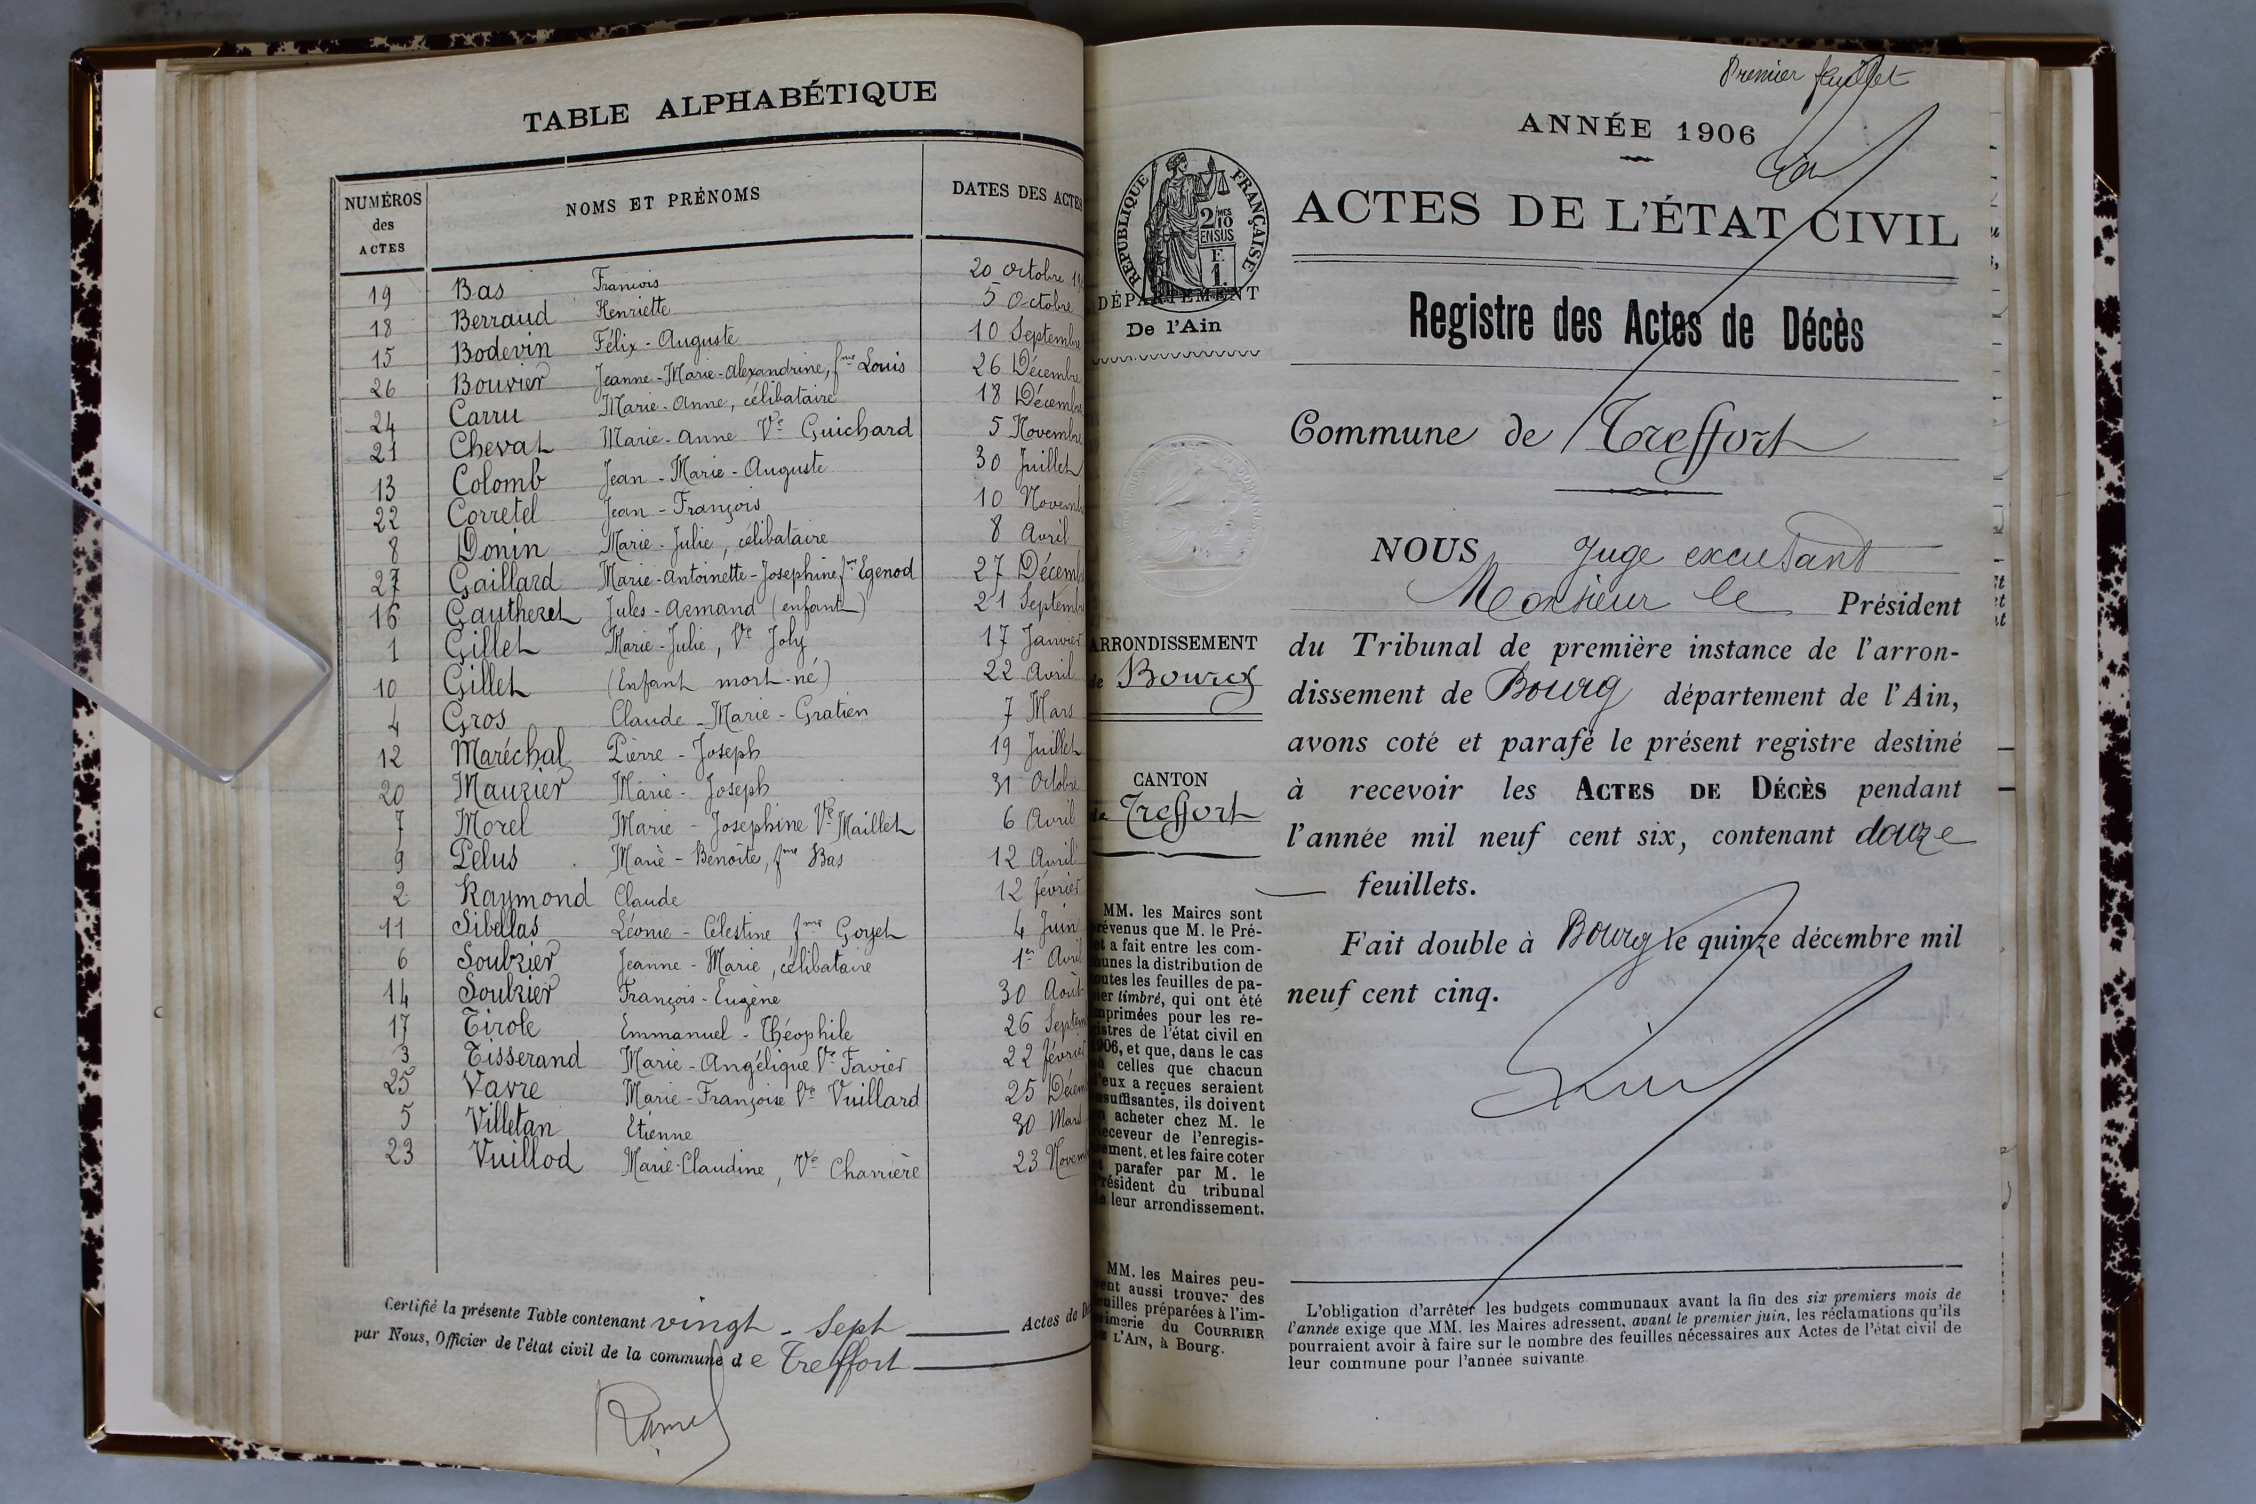 TABLE ALPHABÉTIQUE
NUMÉROS des ACTES
NOMS ET PRÉNOMS
DATES DES ACTES
19 Bas François 20 Octobre
18 Berraud Henriette 5 Octobre
15 Bodevin Félix-Auguste 10 Septembre
26 Bouvier Jeanne-Marie-Alexandrine, fme Louis 26 Décembre
24 Carru Marie-Anne, célibataire 18 Décembre
21 Chevat Marie-Anne Ve Guichard 5 Novembre
13 Colomb Jean-Marie-Auguste 30 Juillet
22 Corretel Jean-François 10 Novemb
8 Donin Marie-Julie, célibataire 8 Avril
27 Gaillard Marie-Antoinette-Josephine, fme Egenod 27 Décemb
16 Gautheret Jules-Armand (enfant) 21 Septemb
1 Gillet Marie-Julie, Ve Joly 17 Janvier
10 Gillet (Enfant mort-né) 22 Avril
4 Gros Claude-Marie-Gratien 7 Mars
12 Maréchal Pierre-Joseph 19 Juillet
20 Mauzier Marie-Joseph 31 Octobre
7 Morel Marie-Josephine Ve Maillet 6 Avril
9 Pelus Marie-Benoîte, fme Bas 12 Avril
2 Raymond Claude 12 février
11 Sibellas Léonie-Célestine fme Goyet 4 Juin
6 Soubrier Jeanne-Marie, célibataire 1er Avril
14 Soubrier François-Eugène 30 Août
17 Tirole Emmanuel-Théophile 26 Septem
3 Tisserand Marie-Angélique Ve Favier 22 février
25 Vavre Marie-Françoise Ve Vuillard 25 Décem
5 Villetan Etienne 30 Mars
23 Vuillod Marie-Claudine, Ve Charrière 23 Novem
Certifié la présente Table contenant vingt-sept Actes de Dé
par Nous, Officier de l'état civil de la commune de Treffort
Premier feuillet
ANNÉE 1906
RÉPUBLIQUE FRANÇAISE
2/10 MES
EN SUS
F.
1.
DÉPARTEMENT
De l'Ain
ACTES DE L'ÉTAT CIVIL
Registre des Actes de Décès
Commune de Treffort
NOUS Juge excusant
Monsieur le Président
du Tribunal de première instance de l'arron-
dissement de Bourg département de l'Ain,
avons coté et parafé le présent registre destiné
à recevoir les ACTES DE DÉCÈS pendant
l'année mil neuf cent six, contenant douze
feuillets.
Fait double à Bourg le quinze décembre mil
neuf cent cinq.
ARRONDISSEMENT
de Bourg
CANTON
de Treffort
MM. les Maires sont
prévenus que M. le Pré-
et a fait entre les com-
munes la distribution de
toutes les feuilles de pa-
pier timbré, qui ont été
imprimées pour les re-
gistres de l'état civil en
1906, et que, dans le cas
où celles que chacun
d'eux a reçues seraient
insuffisantes, ils doivent
en acheter chez M. le
Receveur de l'enregis-
rement, et les faire coter
et parafer par M. le
Président du tribunal
de leur arrondissement.
MM. les Maires peu-
vent aussi trouver des
feuilles préparées à l'im-
primerie du COURRIER
DE L'AIN, à Bourg.
L'obligation d'arrêter les budgets communaux avant la fin des six premiers mois de
l'année exige que MM. les Maires adressent, avant le premier juin, les réclamations qu'ils
pourraient avoir à faire sur le nombre des feuilles nécessaires aux Actes de l'état civil de
leur commune pour l'année suivante.